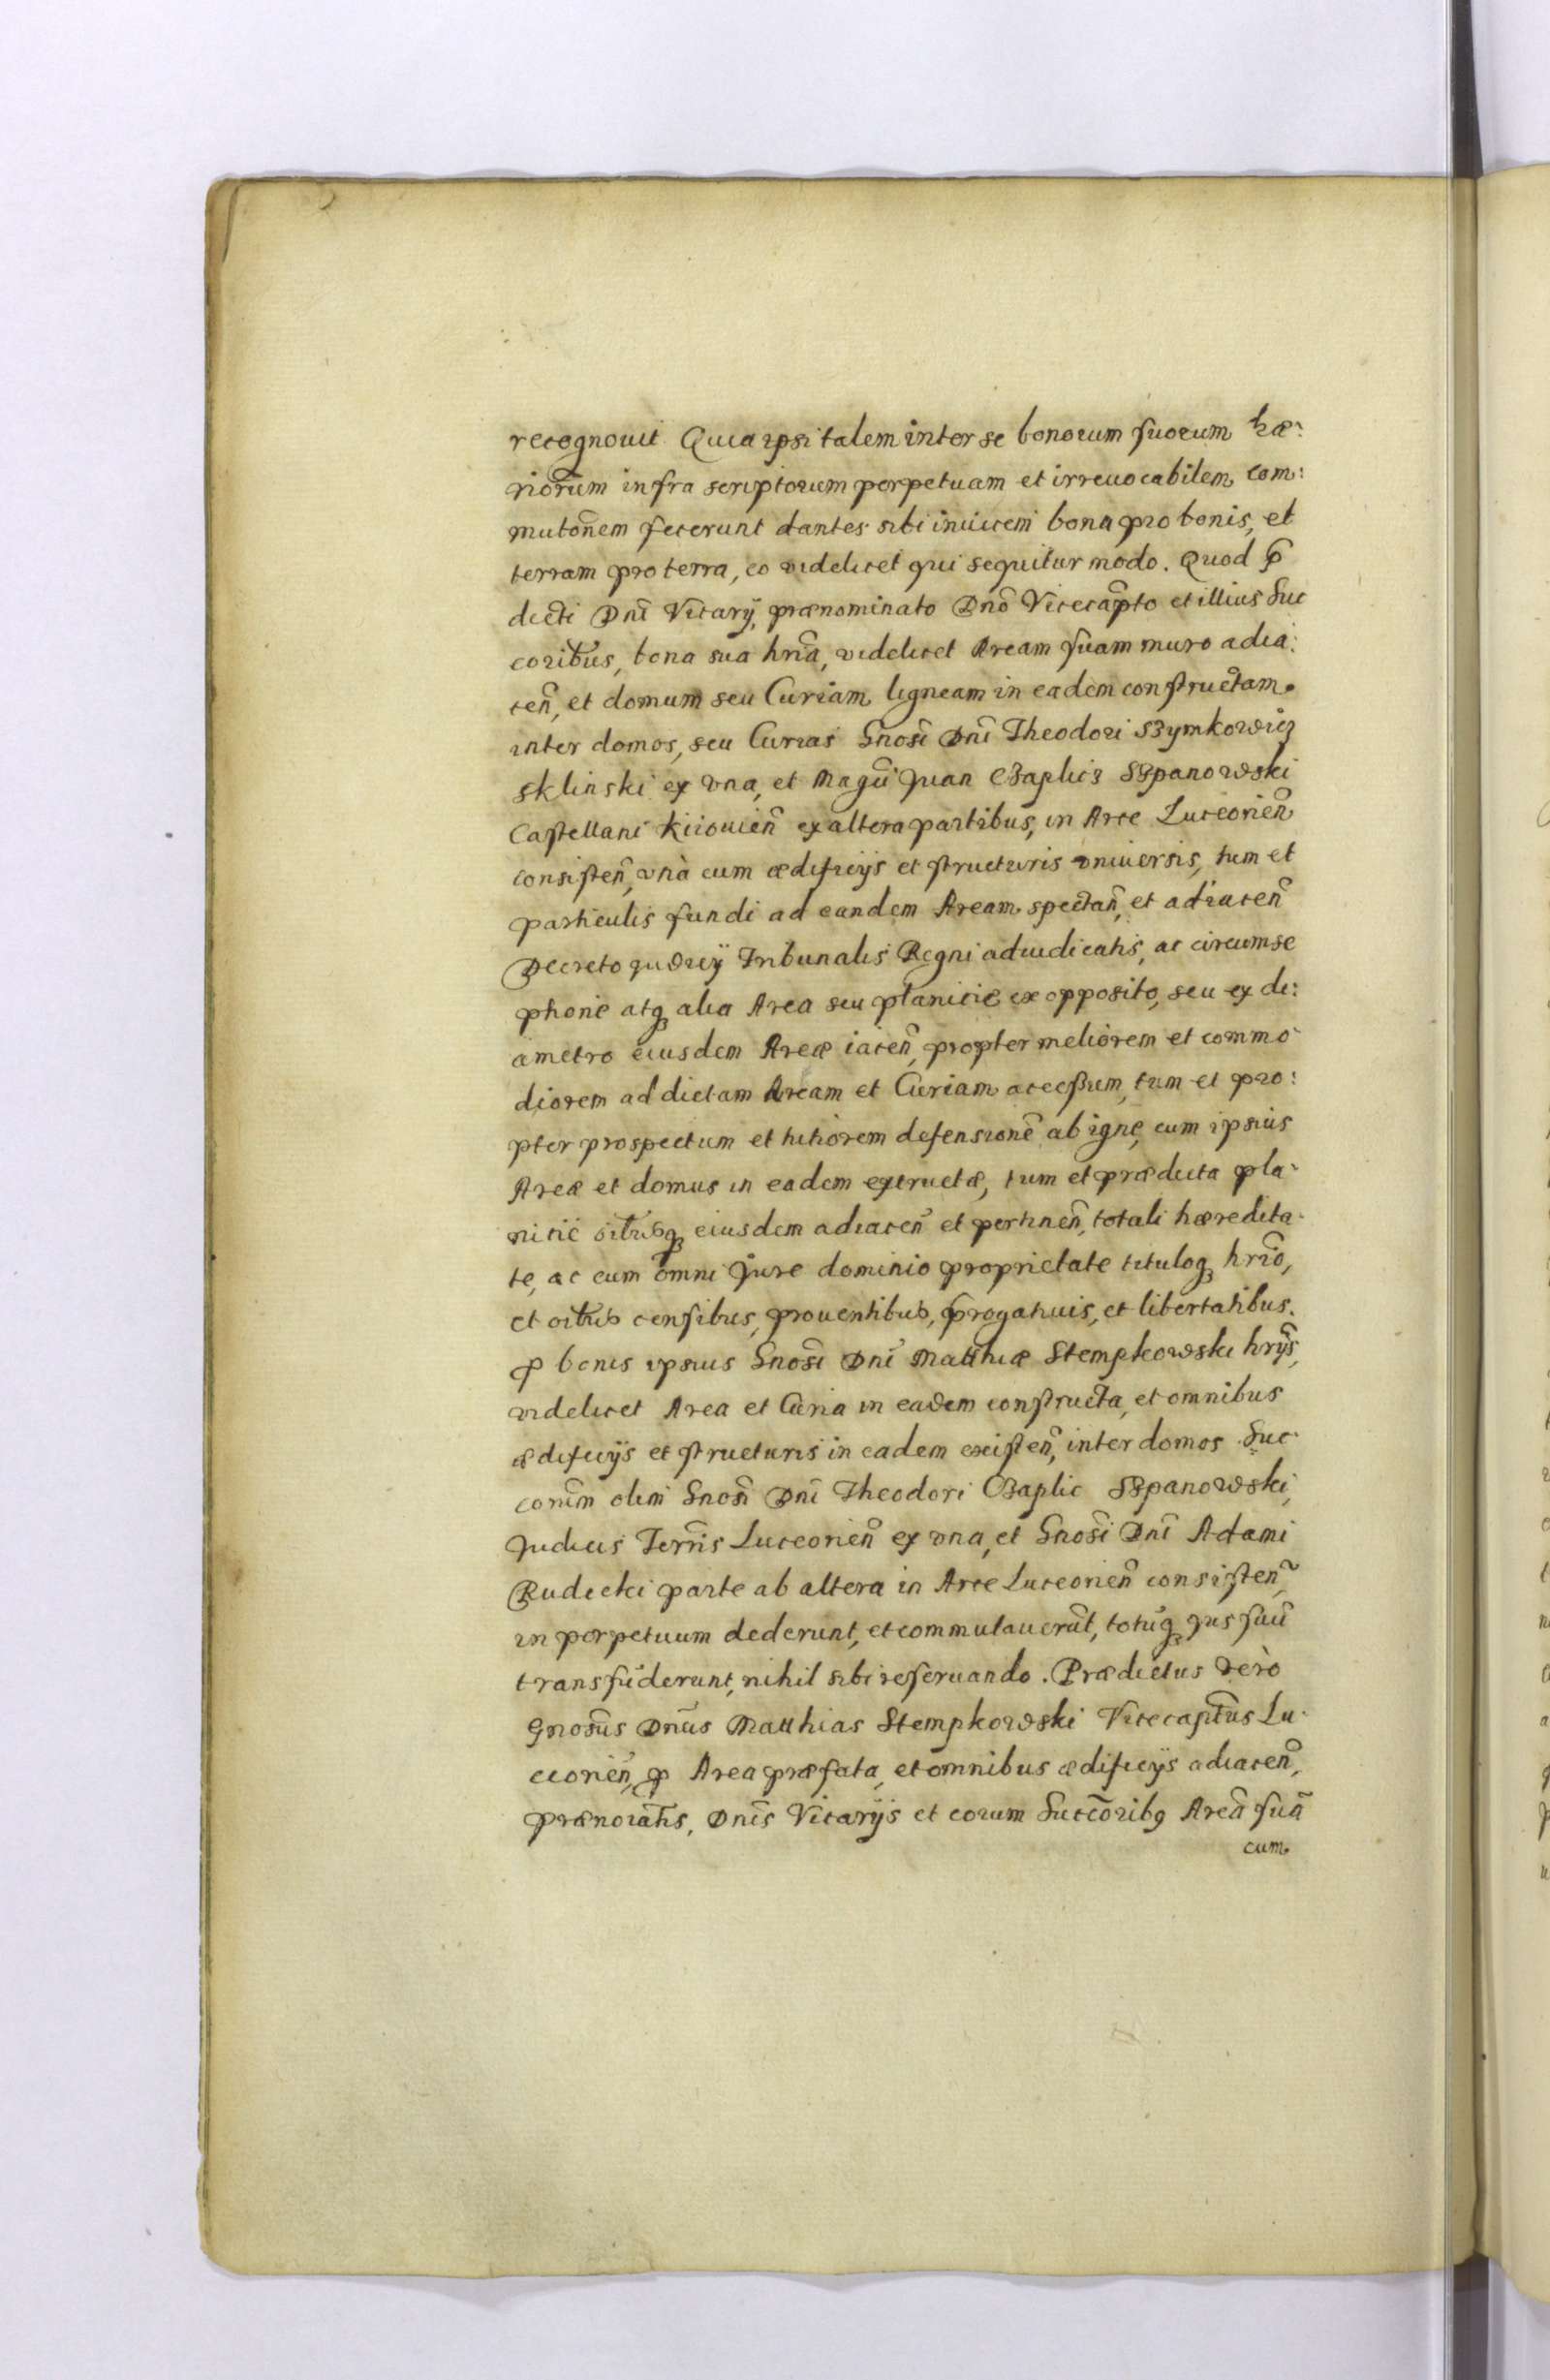 recognouit Quia ipsi talem inter se bonorum suorum hæ:
riorum̃ infra scriptorum perpetuam et irreuocabilem com:
mutoñem fecerunt dantes sibi inuicem bona pro bonis, et
terram pro terra, eo videlicet qui sequitur modo. Quod p̃
dicti Dnĩ Vicarÿ, prænominato Dnõ Vicecap̃to et illius Suc
coribus̃, bona sua hrĩa, videlicet Aream suam muro adia:
ceñ, et domum seu Curiam ligneam in eadem constructam
inter domos, seu Curias Gnosĩ Dnĩ Theodori Szymkowicz
Sklinski ex vna, et Magcĩ Juan Czaplicz Szpanowski
Castellani Kiiouieñ ex altera partibus, in Arce Luceorieñ
consisteñ, vnà cum ædificijs et structuris vniuersis, tum et
particulis fundi ad eandem Aream spectañ, et adiaceñ
Decreto Judicÿ Tribunalis Regni adiudicatis, ac circumse
phone atq̃ alia Area seu planicie ex opposito, seu ex di:
ametro eiusdem Areæ iaceñ, propter meliorem et commo
diorem ad dictam Aream et Curiam accessum, tum et pro:
pter prospectum et tutiorem defensionẽ ab igne, cum ipsius
Areæ et domus in eadem extructæ, tum et prædicta pla
nitie oibusq̃ eiusdem adiaceñ et pertineñ, totali hæredita
te, ac cum omni Jure dominio proprietate tituloq̃ hrĩo,
et oibus̃ censibus, prouentibus, p̃rogatiuis, et libertatibus.
p bonis ipsius Gnosĩ Dnĩ Matthiæ Stempkowski hrÿs̃,
videlicet Area et Curia in eadem constructa, et omnibus
ædificijs et structuris in eadem existeñ, inter domos Suc
corum̃ olim Gnosĩ Dnĩ Theodori Czaplic Szpanowski,
Judicis Terrĩs Luceorieñ ex vna, et Gnosĩ Dnĩ Adami
Rudecki parte ab altera in Arce Luceorieñ consisteñ,
in perpetuum dederunt, et commutauerũt, totũq̃ jus suũ
transfuderunt, nihil sibi reseruando. Prædictus verò
Gnosũs Dnũs Matthias Stempkowski Vicecap̃tus Lu
ceorieñ, p Area præfata, et omnibus ædificijs adiaceñ,
prænoiãtis, Dnĩs Vicarÿs et eorum Succõribq Areã suã
cum